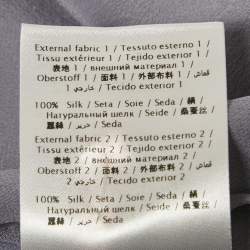 External fabric 1 / Tessuto esterno 1 /
Tissu extérieur 1 / Tejido exterior 1 /
表地 1 / внешний материал 1 /
Oberstoff 1 / 面料 1 / 外部布料 1 / قماش
خارجي 1 / Tecido exterior 1
100% Silk / Seta / Soie / Seda / 絹
/ Натуральный шелк / Seide / 桑蚕丝 /
蠶絲 / حرير / Seda
External fabric 2 / Tessuto esterno 2 /
Tissu extérieur 2 / Tejido exterior 2 /
表地 2 / внешний материал 2 /
Oberstoff 2 / 面料 2 / 外部布料 2 / قماش
خارجي 2 / Tecido exterior 2
100% Silk / Seta / Soie / Seda / 絹
/ Натуральный шелк / Seide / 桑蚕丝 /
蠶絲 / حرير / Seda